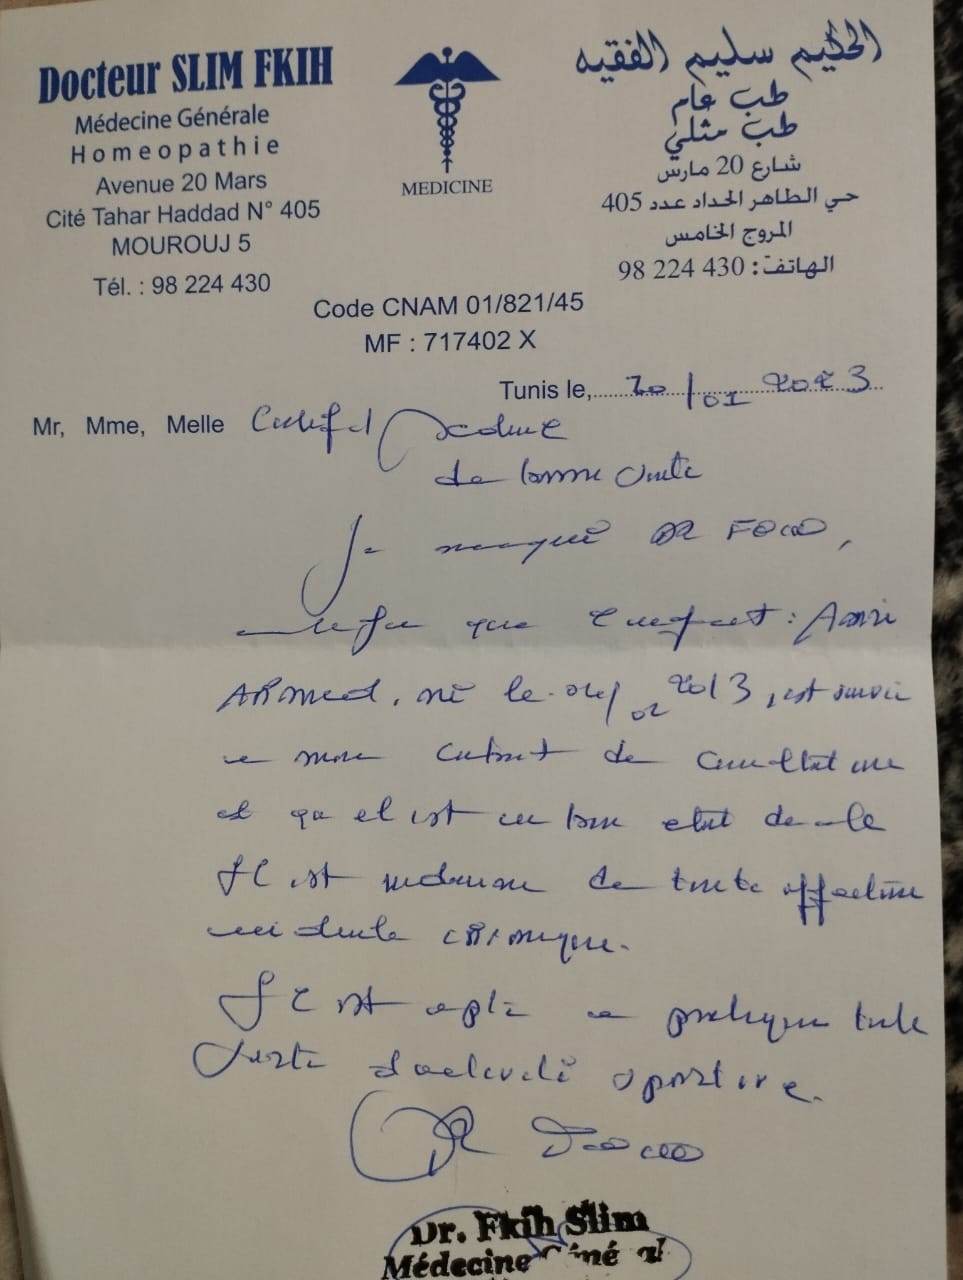 Docteur SLIM FKIH
Médecine Générale
Homeopathie
Avenue 20 Mars
Cité Tahar Haddad N° 405
MOUROUJ 5
Tél. : 98 224 430
MEDICINE
الحكيم سليم الفقيه
طب عام
طب مثلي
شارع 20 مارس
حي الطاهر الحداد عدد 405
المروج الخامس
الهاتف : 98 224 430
Code CNAM 01/821/45
MF : 717402 X
Tunis le, 20/01 2023
Mr, Mme, Melle Certificat
de bonne Santé
Je DR
que l'enfant :
Ahmed, né le 2013, est suivi
mon cabinet de consultation
et qu'il est en bon etat de
Il est indemne de toute affection
chronique.
Il est apte a pratiquer toute
sorte d'activité sportive.
DR
Dr. Fkih Slim
Médecine Général